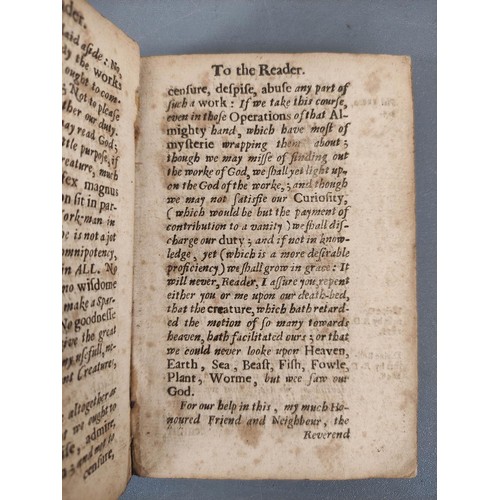 ader.
laid aside: No,
y the works
ought to com-
; Not to please
ther our duty.
may read God;
ttle purpose, if
reature, much
fex magnus
on sit in par-
ork-man in
is not a jot
mnipotency,
in ALL. No
no wisdome
make a Spar-
No goodnesse
ive the great
ny usefull, ne-
nt Creature,
altogether as
we ought to
ise, admire,
; and not to
censure,
To the Reader.
censure, despise, abuse any part of
such a work: If we take this course,
even in those Operations of that Al-
mighty hand, which have most of
mysterie wrapping them about;
though we may misse of finding out
the worke of God, we shall yet light up-
on the God of the worke,; and though
we may not satisfie our Curiosity,
(which would be but the payment of
contribution to a vanity) we shall dis-
charge our duty; and if not in know-
ledge, yet (which is a more desirable
proficiency) we shall grow in grace: It
will never, Reader, I assure you, repent
either you or me upon our death-bed,
that the creature, which hath retard-
ed the motion of so many towards
heaven, hath facilitated ours; or that
we could never looke upon Heaven,
Earth, Sea, Beast, Fish, Fowle,
Plant, Worme, but wee saw our
God.
For our help in this, my much Ho-
noured Friend and Neighbour, the
Reverend